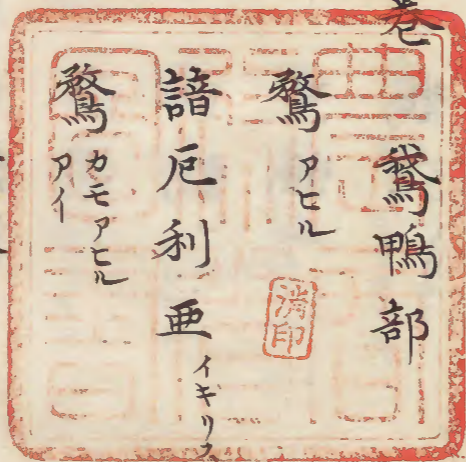 巻
鵞鴨部
鶩 アヒル
諳厄利亜 イキリス
鶩 カモアヒル アイ
消印